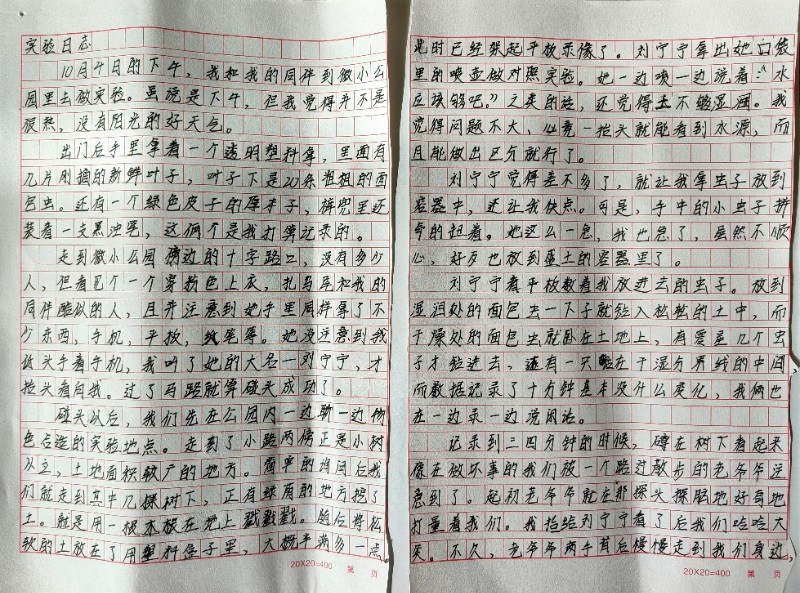 实验日志
10月4日的下午，我和我的同伴到微小公
园里去做实验。虽说是下午，但我觉得并不是
很热，没有阳光的好天气。
出门后手里拿着一个透明塑料拿，里面有
几片刚摘的新鲜叶子，叶子下是20条粗粗的面
包虫。还有一个绿色皮子的厚本子，裤兜里还
装着一支黑油笔，这俩个是我打算记录的。
走到微小公园旁边的十字路口，没有多少
人，但看见个一个穿粉色上衣，扎马尾和我的
同伴酷似的人，且并注意到她手里同样拿了不
少东西，手机，平板，纸笔等。她没注意到我
低头手看手机，我叫了她的大名一刘宁宁，才
抬头看向我。过了马路就算碰头成功了。
碰头以后，我们先在公园内一边聊一边物
色合适的实验地点。走到了小路两旁正是小树
以之，土地面积较广的地方。商寧的询问后我
们就走到其中几棵树下，正有缺角的地方挖了
土。就是用一根木棍在地上戳戳戳。随后将松
软的土放在了用塑料盒子里，大概平满多一点。
20X20=400 第 页
是时已经架起平板录像了。刘宁宁拿出她口袋
里的喷壶做对照实验。她一边喷一边说着："水
应该够吧。"之类的话，还觉得土不够湿润。我
觉得问题不大，心竟一抬头就能看到水源，而
且能做出区分就行了。
刘宁宁觉得差不多了，就让我拿虫子放到
容器中，还让我快点。可是，手中的小虫子拼
命的扭着。她这么一急，我也急了，虽然不顺
心，好歹也放到盛土的容器里了。
刘宁宁看平板数着我放进去的虫子。放到
湿润处的面包虫一下子就钻入松松的土中，而
干燥处的面包虫就卧在土地上，有爱差几个虫
子才钻进去，还有一只卧在干湿分界线的中间，
而数据记录了十分钟基本没什么变化，我俩也
在一边录一边说闲话。
记录到三四分钟的时候，蹲在树下看起来
像在做坏事的我们被一个路过散步的老爷爷注
意到了。起初老爷爷就在那探头探脑地好奇地
打量着我们。我指给刘宁宁看了后我们哈哈大
笑。不久，老爷爷两手背后慢慢走到我们身边，
20X20=400 第 页